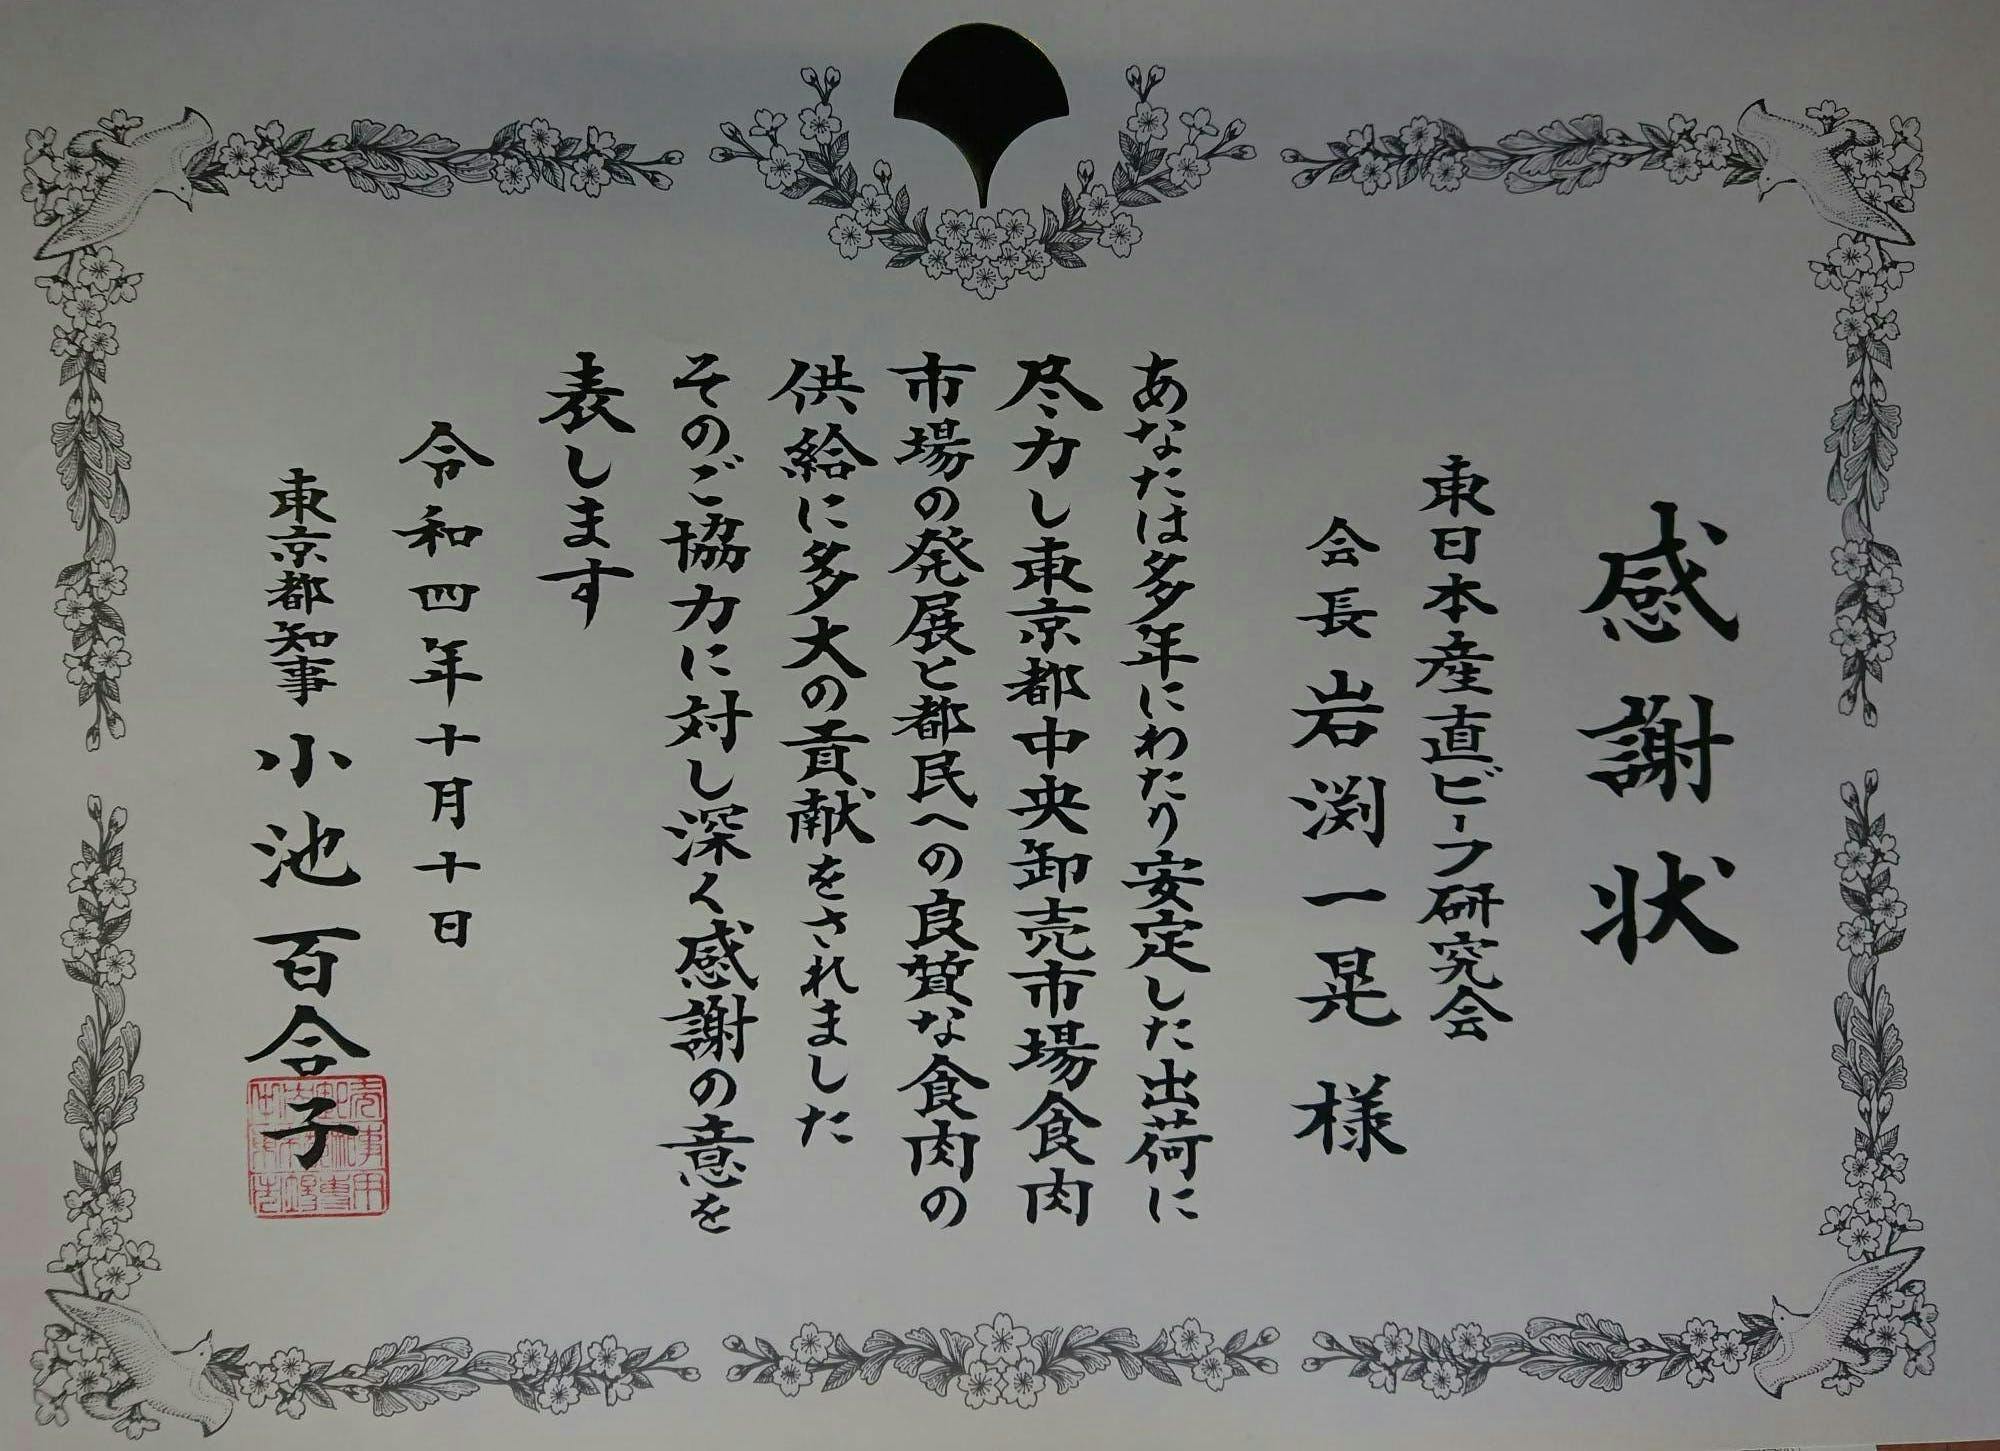 感謝状
東日本産直ビーフ研究会
会長 岩渕一晃様
あなたは多年にわたり安定した出荷に
尽力し東京都中央卸売市場食肉
市場の発展と都民への良質な食肉の
供給に多大の貢献をされました
そのご協力に対し深く感謝の意を
表します
令和四年十月十日
東京都知事 小池百合子